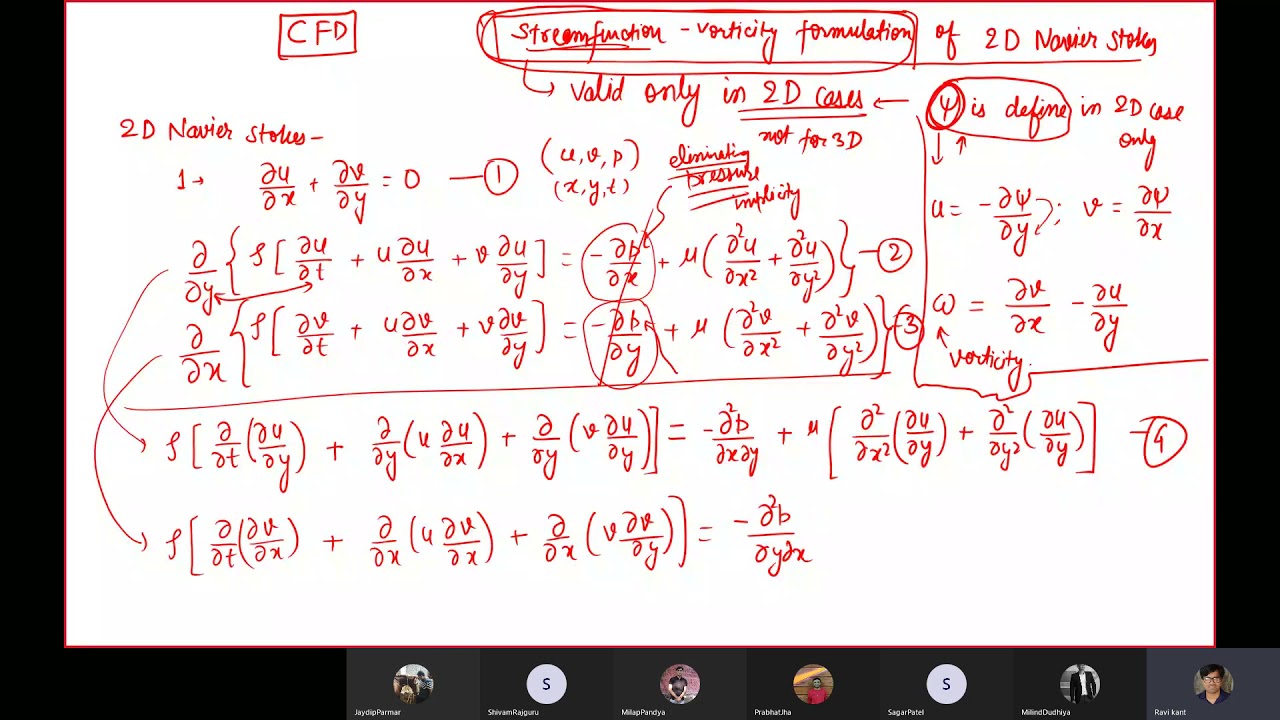 CFD
Streamfunction - vorticity formulation of 2D Navier Stokes
↳ valid only in 2D cases ← ψ is define in 2D case only
not for 3D
2D Navier Stokes -
1→ ∂u/∂x + ∂v/∂y = 0 — ①
(u, v, p)
(x, y, t)
eliminating
pressure
implicity
u = -∂ψ/∂y ; v = ∂ψ/∂x
∂/∂y { ρ[ ∂u/∂t + u ∂u/∂x + v ∂u/∂y ] = -∂p/∂x + μ( ∂²u/∂x² + ∂²u/∂y² ) } — ②
∂/∂x { ρ[ ∂v/∂t + u ∂v/∂x + v ∂v/∂y ] = -∂p/∂y + μ( ∂²v/∂x² + ∂²v/∂y² ) } — ③
ω = ∂v/∂x - ∂u/∂y
vorticity
ρ[ ∂/∂t(∂u/∂y) + ∂/∂y(u ∂u/∂x) + ∂/∂y(v ∂u/∂y) ] = -∂²p/∂x∂y + μ[ ∂²/∂x²(∂u/∂y) + ∂²/∂y²(∂u/∂y) ] — ④
ρ[ ∂/∂t(∂v/∂x) + ∂/∂x(u ∂v/∂x) + ∂/∂x(v ∂v/∂y) ] = -∂²p/∂y∂x
S
S
JaydipParmar
ShivamRajguru
MilapPandya
PrabhatJha
SagarPatel
MilindDudhiya
Ravi kant